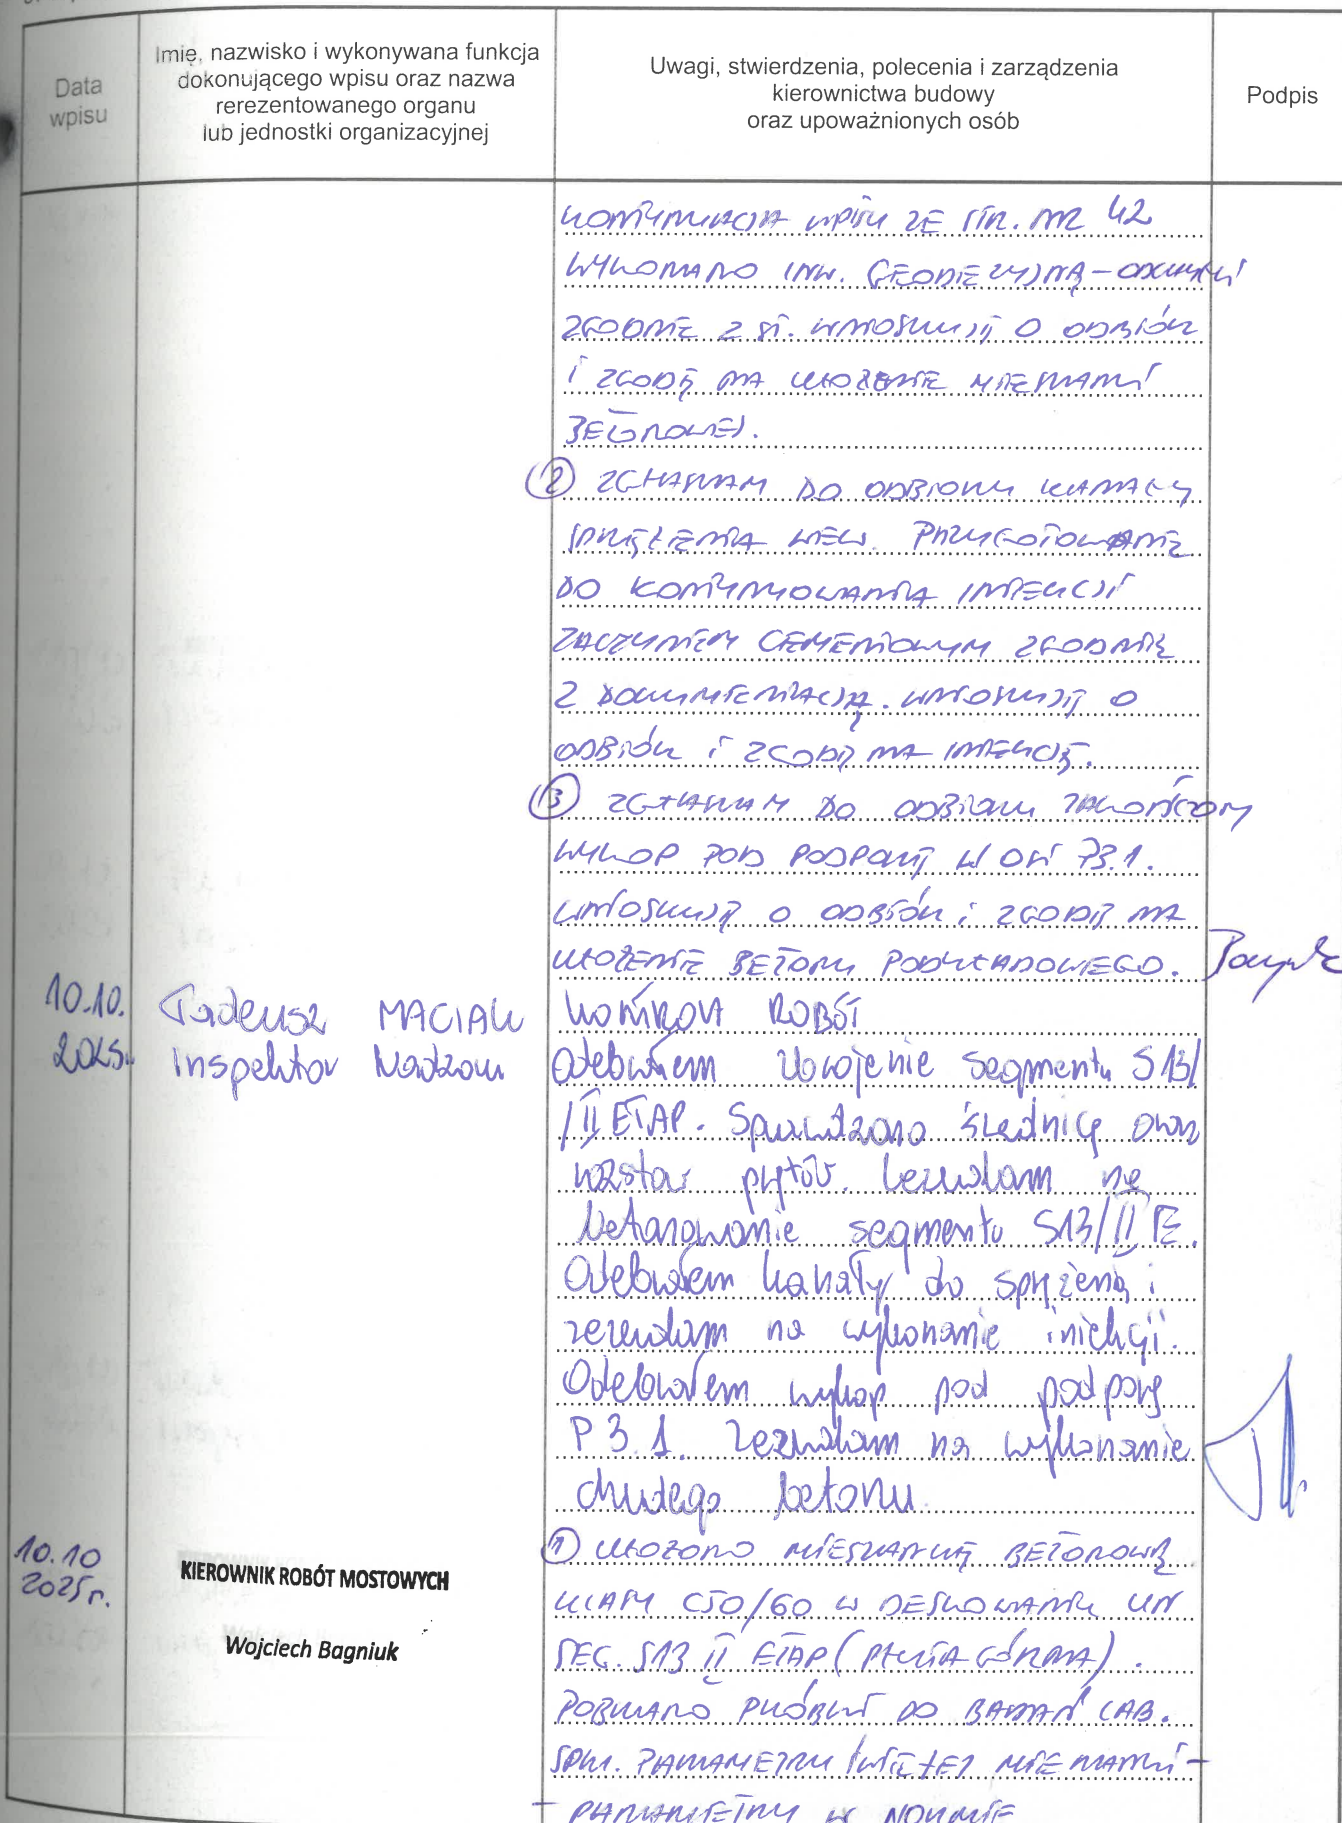 Data
wpisu
Imię, nazwisko i wykonywana funkcja
dokonującego wpisu oraz nazwa
rerezentowanego organu
lub jednostki organizacyjnej
Uwagi, stwierdzenia, polecenia i zarządzenia
kierownictwa budowy
oraz upoważnionych osób
Podpis
KONTYNUACJA WPISU ZE STR. NR 42
WYKONANO INW. GEODEZYJNĄ - ODCHYŁKI
ZGODNIE Z ST. WNIOSKUJĘ O ODBIÓR
I ZGODĘ NA UŁOŻENIE MIESZANKI
BETONOWEJ.
② ZGŁASZAM DO ODBIORU KANAŁY
SPRĘŻENIA WEW. PRZYGOTOWANIE
DO KONTYNUOWANIA INIEKCJI
ZACZYNEM CEMENTOWYM ZGODNIE
Z DOKUMENTACJĄ. WNIOSKUJĘ O
ODBIÓR I ZGODĘ NA INIEKCJĘ.
③ ZGŁASZAM DO ODBIORU ZAKOŃCZONY
WYKOP POD PODPORĘ W OSI P3.1.
WNIOSKUJĘ O ODBIÓR I ZGODĘ NA
UŁOŻENIE BETONU PODKŁADOWEGO.
10.10.
2025r.
Tadeusz MACIAK
Inspektor Nadzoru
ROBÓT
Odebrałem zbrojenie segmentu S13/
/II ETAP. Sprawdzono średnicę oraz
rozstaw prętów. Zezwalam na
betonowanie segmentu S13/II E.
Odebrałem kanały do sprężenia i
zezwalam na wykonanie iniekcji.
Odebrałem wykop pod podporę
P 3.1. Zezwalam na wykonanie
chudego betonu
10.10
2025r.
KIEROWNIK ROBÓT MOSTOWYCH
Wojciech Bagniuk
① UŁOŻONO MIESZANKĘ BETONOWĄ
KLASY C50/60 W DESKOWANIU UN
SEG. S13 II ETAP (PŁYTA GÓRNA).
POBRANO PRÓBKI DO BADAŃ LAB.
SPR. PARAMETRY ŚWIEŻEJ MIESZANKI -
- PARAMETRY W NORMIE